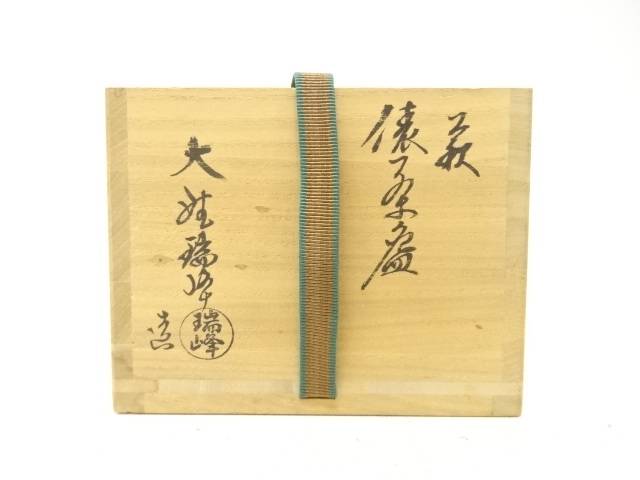 萩
俵茶盌
大野瑞峰
造
瑞峰